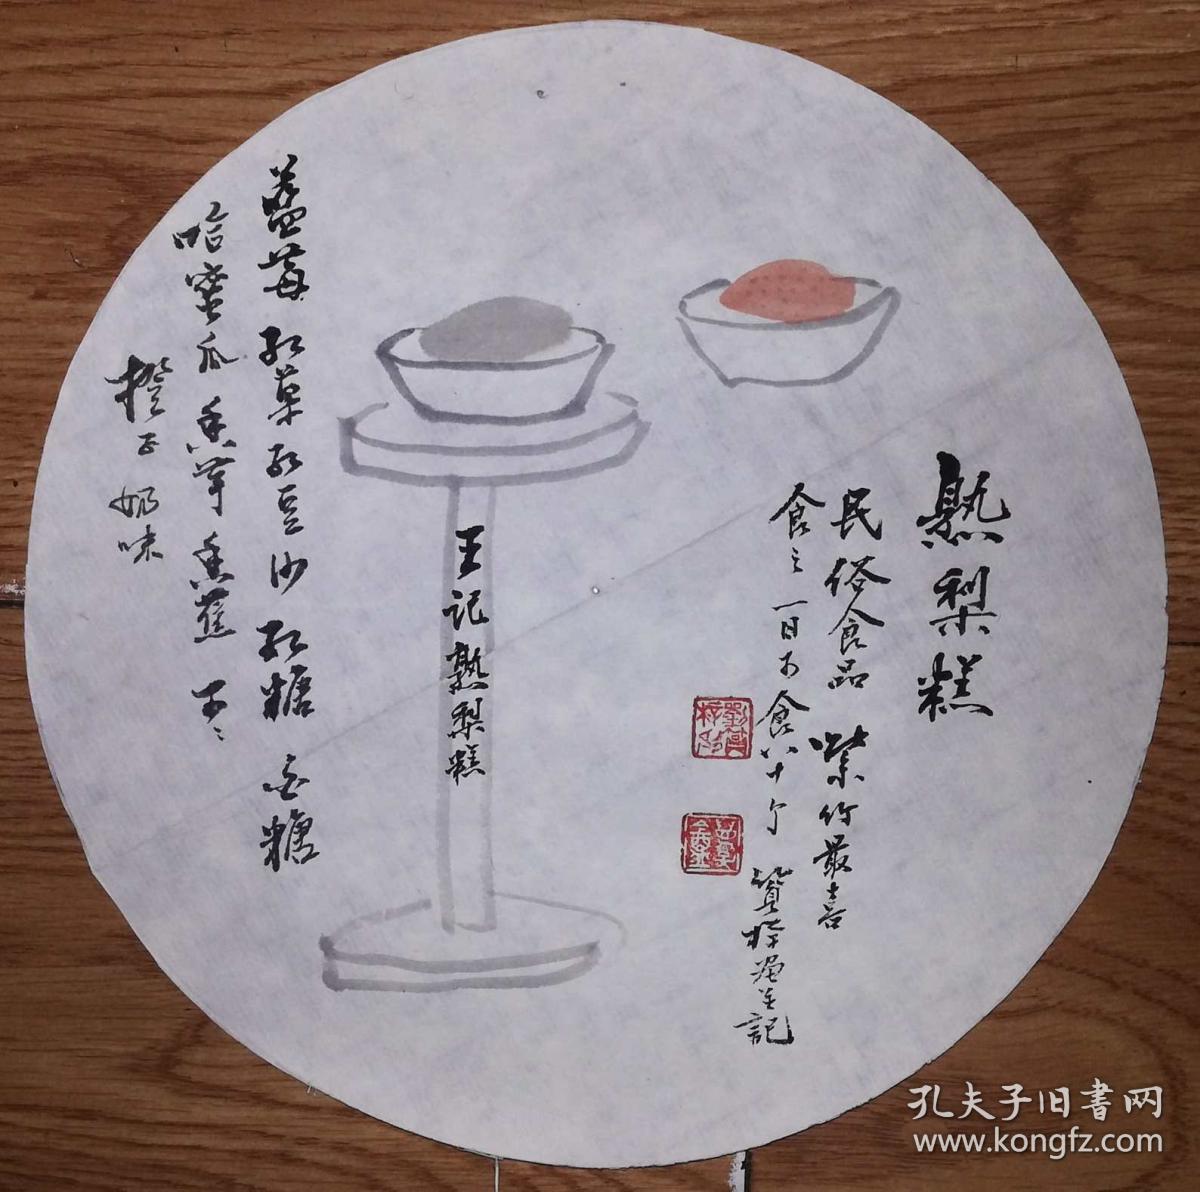 熟梨糕
民俗食品 紫竹最喜
食之一日可食八十个 筫梓 并記
王记熟梨糕
蓝莓 红草 红豆沙 红糖 白糖
哈蜜瓜 香芋 香蕉
橙子 奶味
孔夫子旧書网
www.kongfz.com